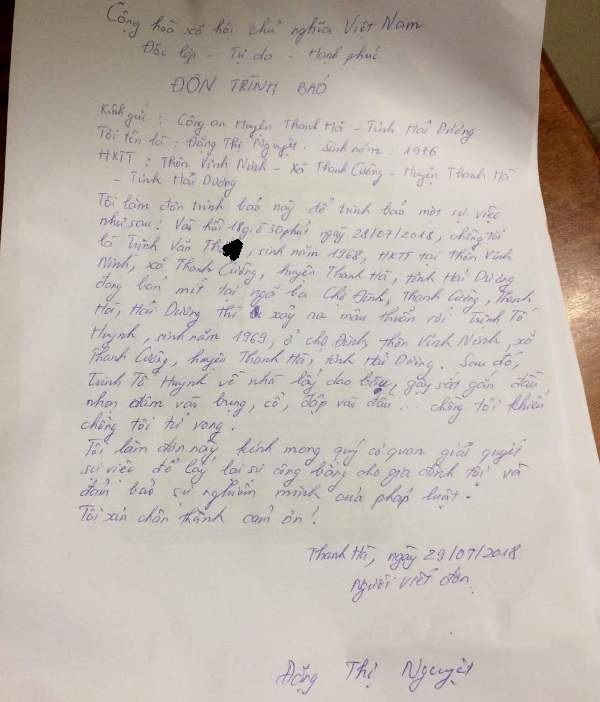 Cộng hoà xã hội chủ nghĩa Việt Nam
Độc lập - Tự do - Hạnh phúc
ĐƠN TRÌNH BÁO
Kính gửi : Công an Huyện Thanh Hà - Tỉnh Hải Dương
Tôi tên là : Đặng Thị Nguyệt. Sinh năm : 1976
HKTT : Thôn Vĩnh Ninh - Xã Thanh Cường - Huyện Thanh Hà
- Tỉnh Hải Dương
Tôi làm đơn trình báo này để trình báo một sự việc
như sau: Vào hồi 18giờ30phút ngày 28/07/2018, chồng tôi
là Trịnh Văn Th , sinh năm 1968, HKTT tại thôn Vĩnh
Ninh, xã Thanh Cường, huyện Thanh Hà, tỉnh Hải Dương
đang bán mít tại ngã ba Chợ Đình, Thanh Cường, Thanh
Hà, Hải Dương thì xảy ra mâu thuẫn với Trịnh Tố
Huynh, sinh năm 1969, ở chợ Đình, thôn Vĩnh Ninh, xã
Thanh Cường, huyện Thanh Hà, tỉnh Hải Dương. Sau đó,
Trịnh Tố Huynh về nhà lấy dao bầu, gậy sắt gắn đầu
nhọn đâm vào bụng, cổ, đập vào đầu ... chồng tôi khiến
chồng tôi tử vong.
Tôi làm đơn này kính mong quý cơ quan giải quyết
sự việc để lấy lại sự công bằng cho gia đình tôi và
đảm bảo sự nghiêm minh của pháp luật.
Tôi xin chân thành cảm ơn!
Thanh Hà, ngày 29/07/2018
Người viết đơn
Đặng Thị Nguyệt